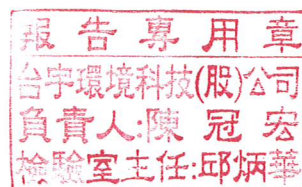 報告專用章
台宇環境科技(股)公司
負責人:陳冠宏
檢驗室主任:邱炳華